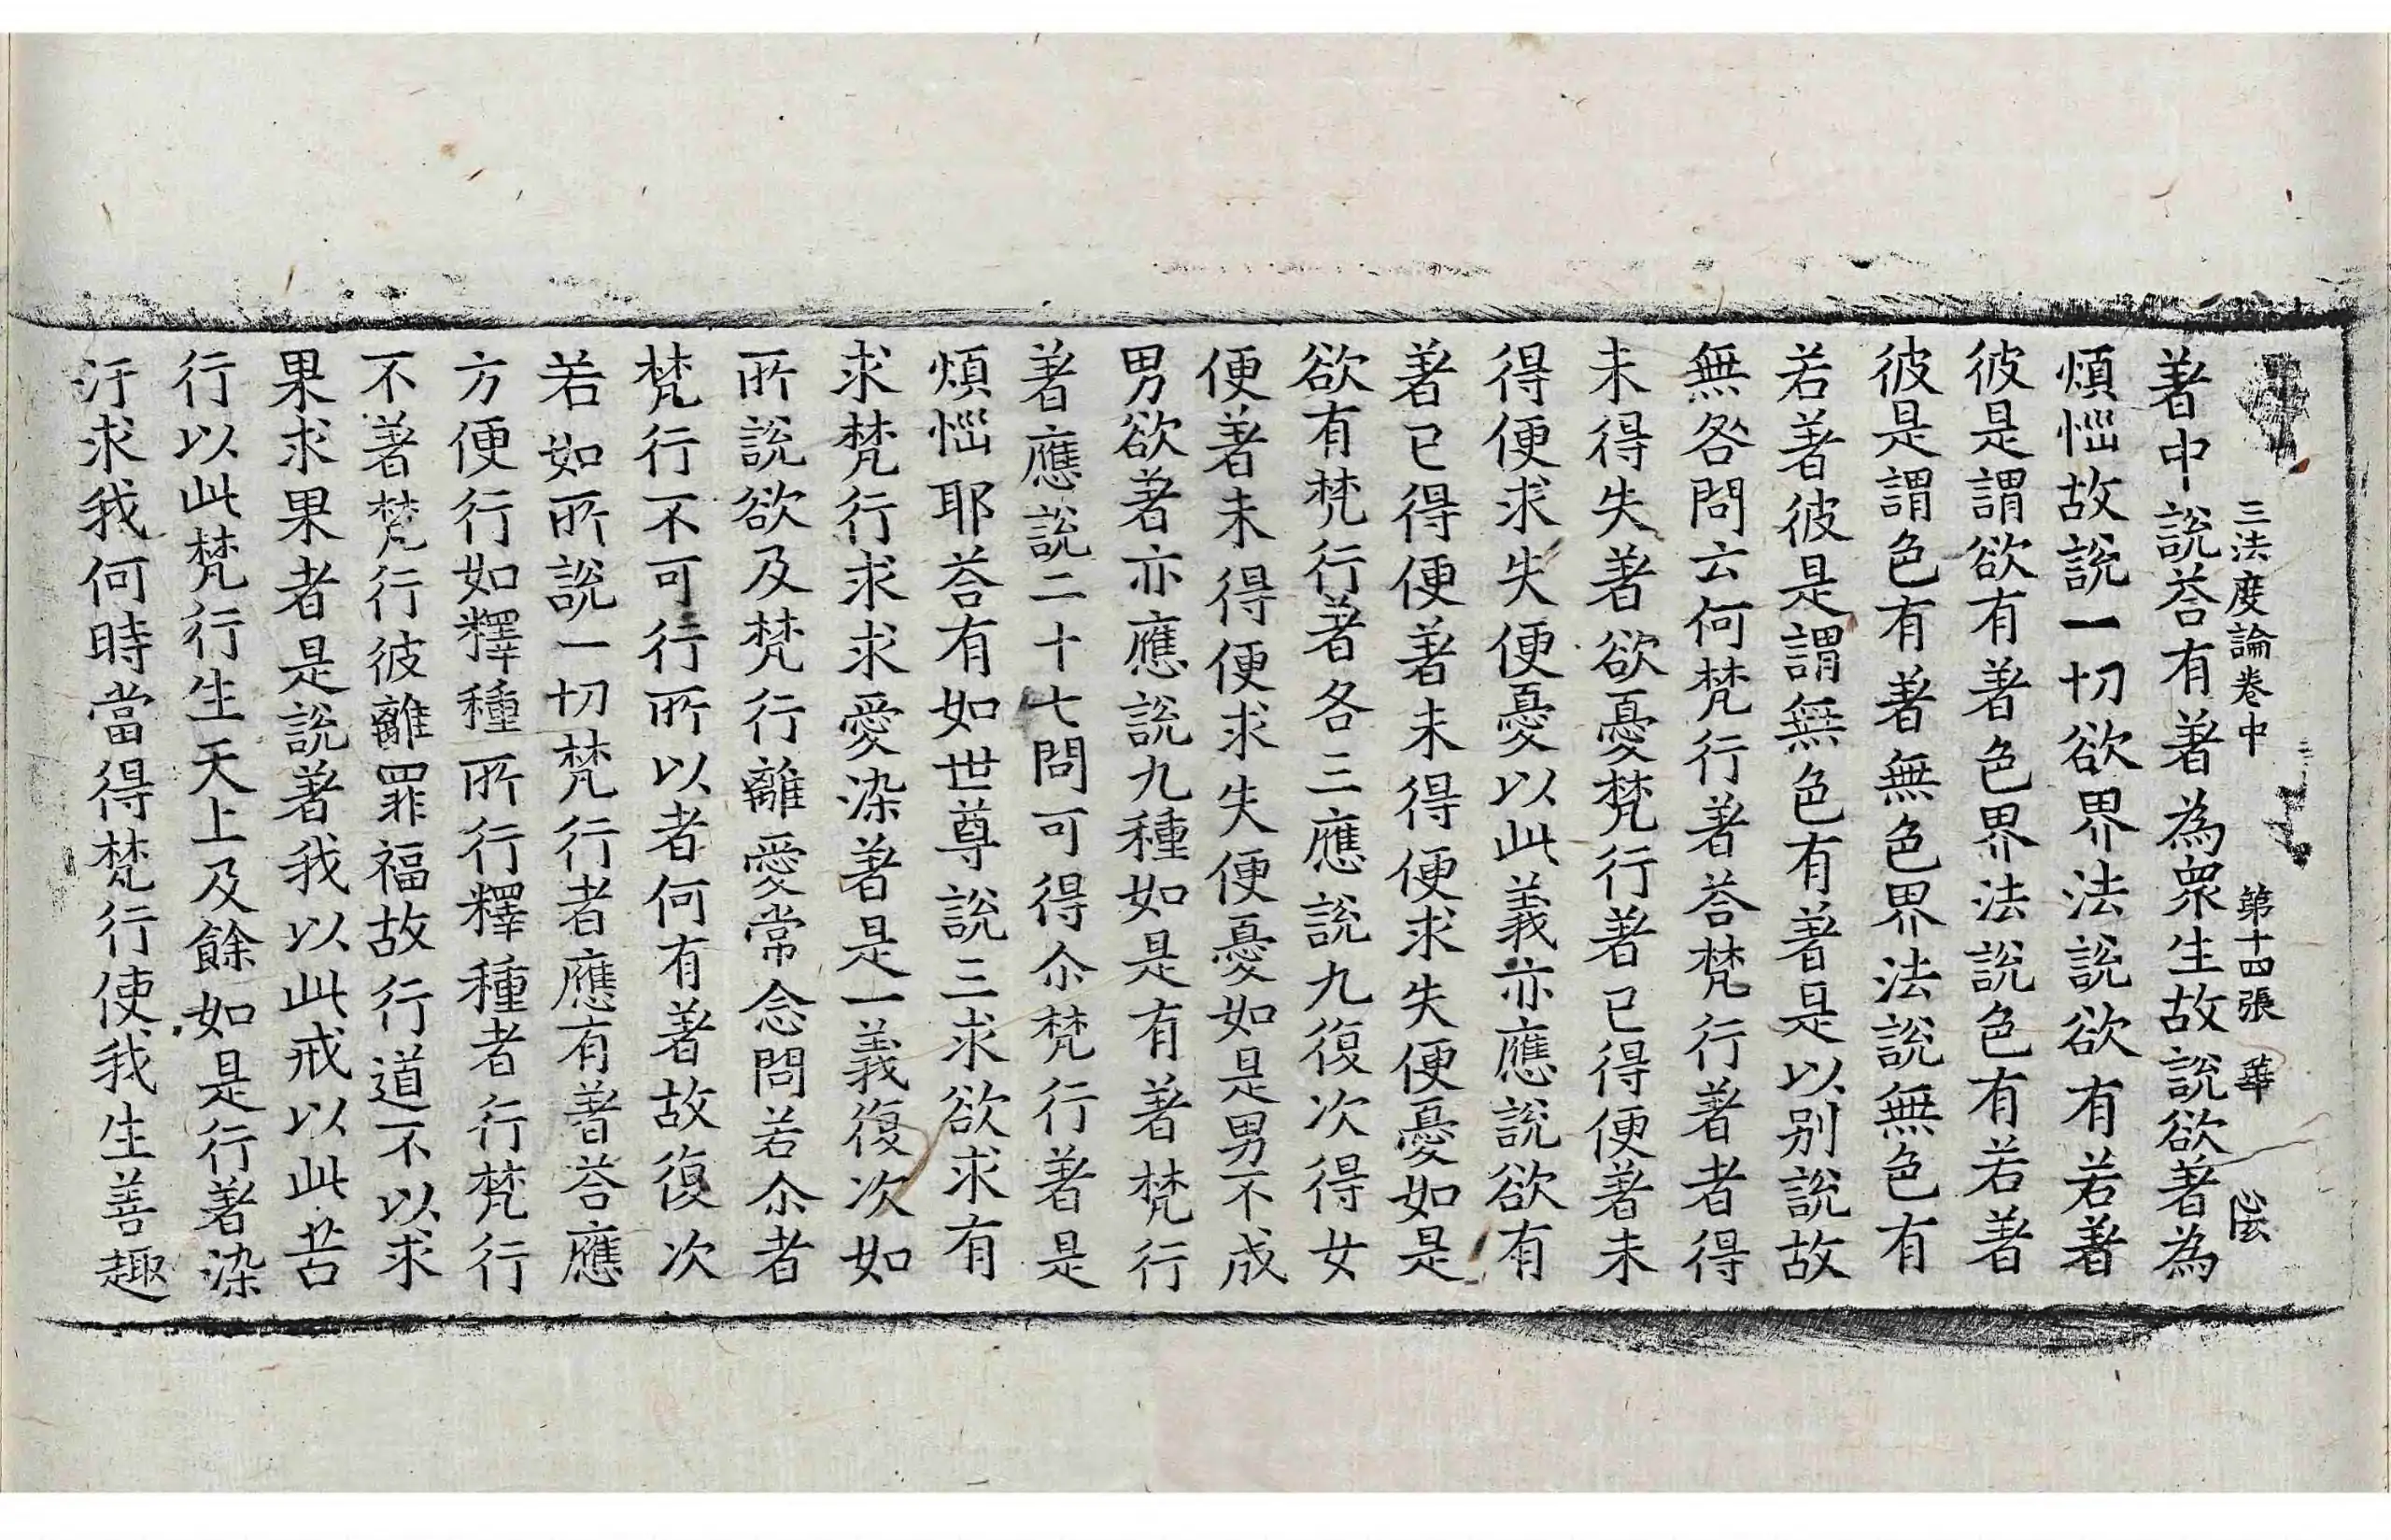 三法度論卷中　第十四張　華　心玄
著中說荅有著為衆生故說欲著為
煩惱故說一切欲界法說欲有若著
彼是謂欲有著色界法說色有若著
彼是謂色有著無色界法說無色有
若著彼是謂無色有著是以别說故
無咎問云何梵行著荅梵行著者得
未得失著欲憂梵行著已得便著未
得便求失便憂以此義亦應說欲有
著已得便著未得便求失便憂如是
欲有梵行著各三應說九復次得女
便著未得便求失便憂如是男不成
男欲著亦應說九種如是有著梵行
著應說二十七問可得尒梵行著是
煩惱耶荅有如世尊說三求欲求有
求梵行求求愛染著是一義復次如
所說欲及梵行離愛常念問若尒者
梵行不可行所以者何有著故復次
若如所說一切梵行者應有著荅應
方便行如釋種所行釋種者行梵行
不著梵行彼離罪福故行道不以求
果求果者是說著我以此戒以此苦
行以此梵行生天上及餘如是行著染
汙求我何時當得梵行使我生善趣